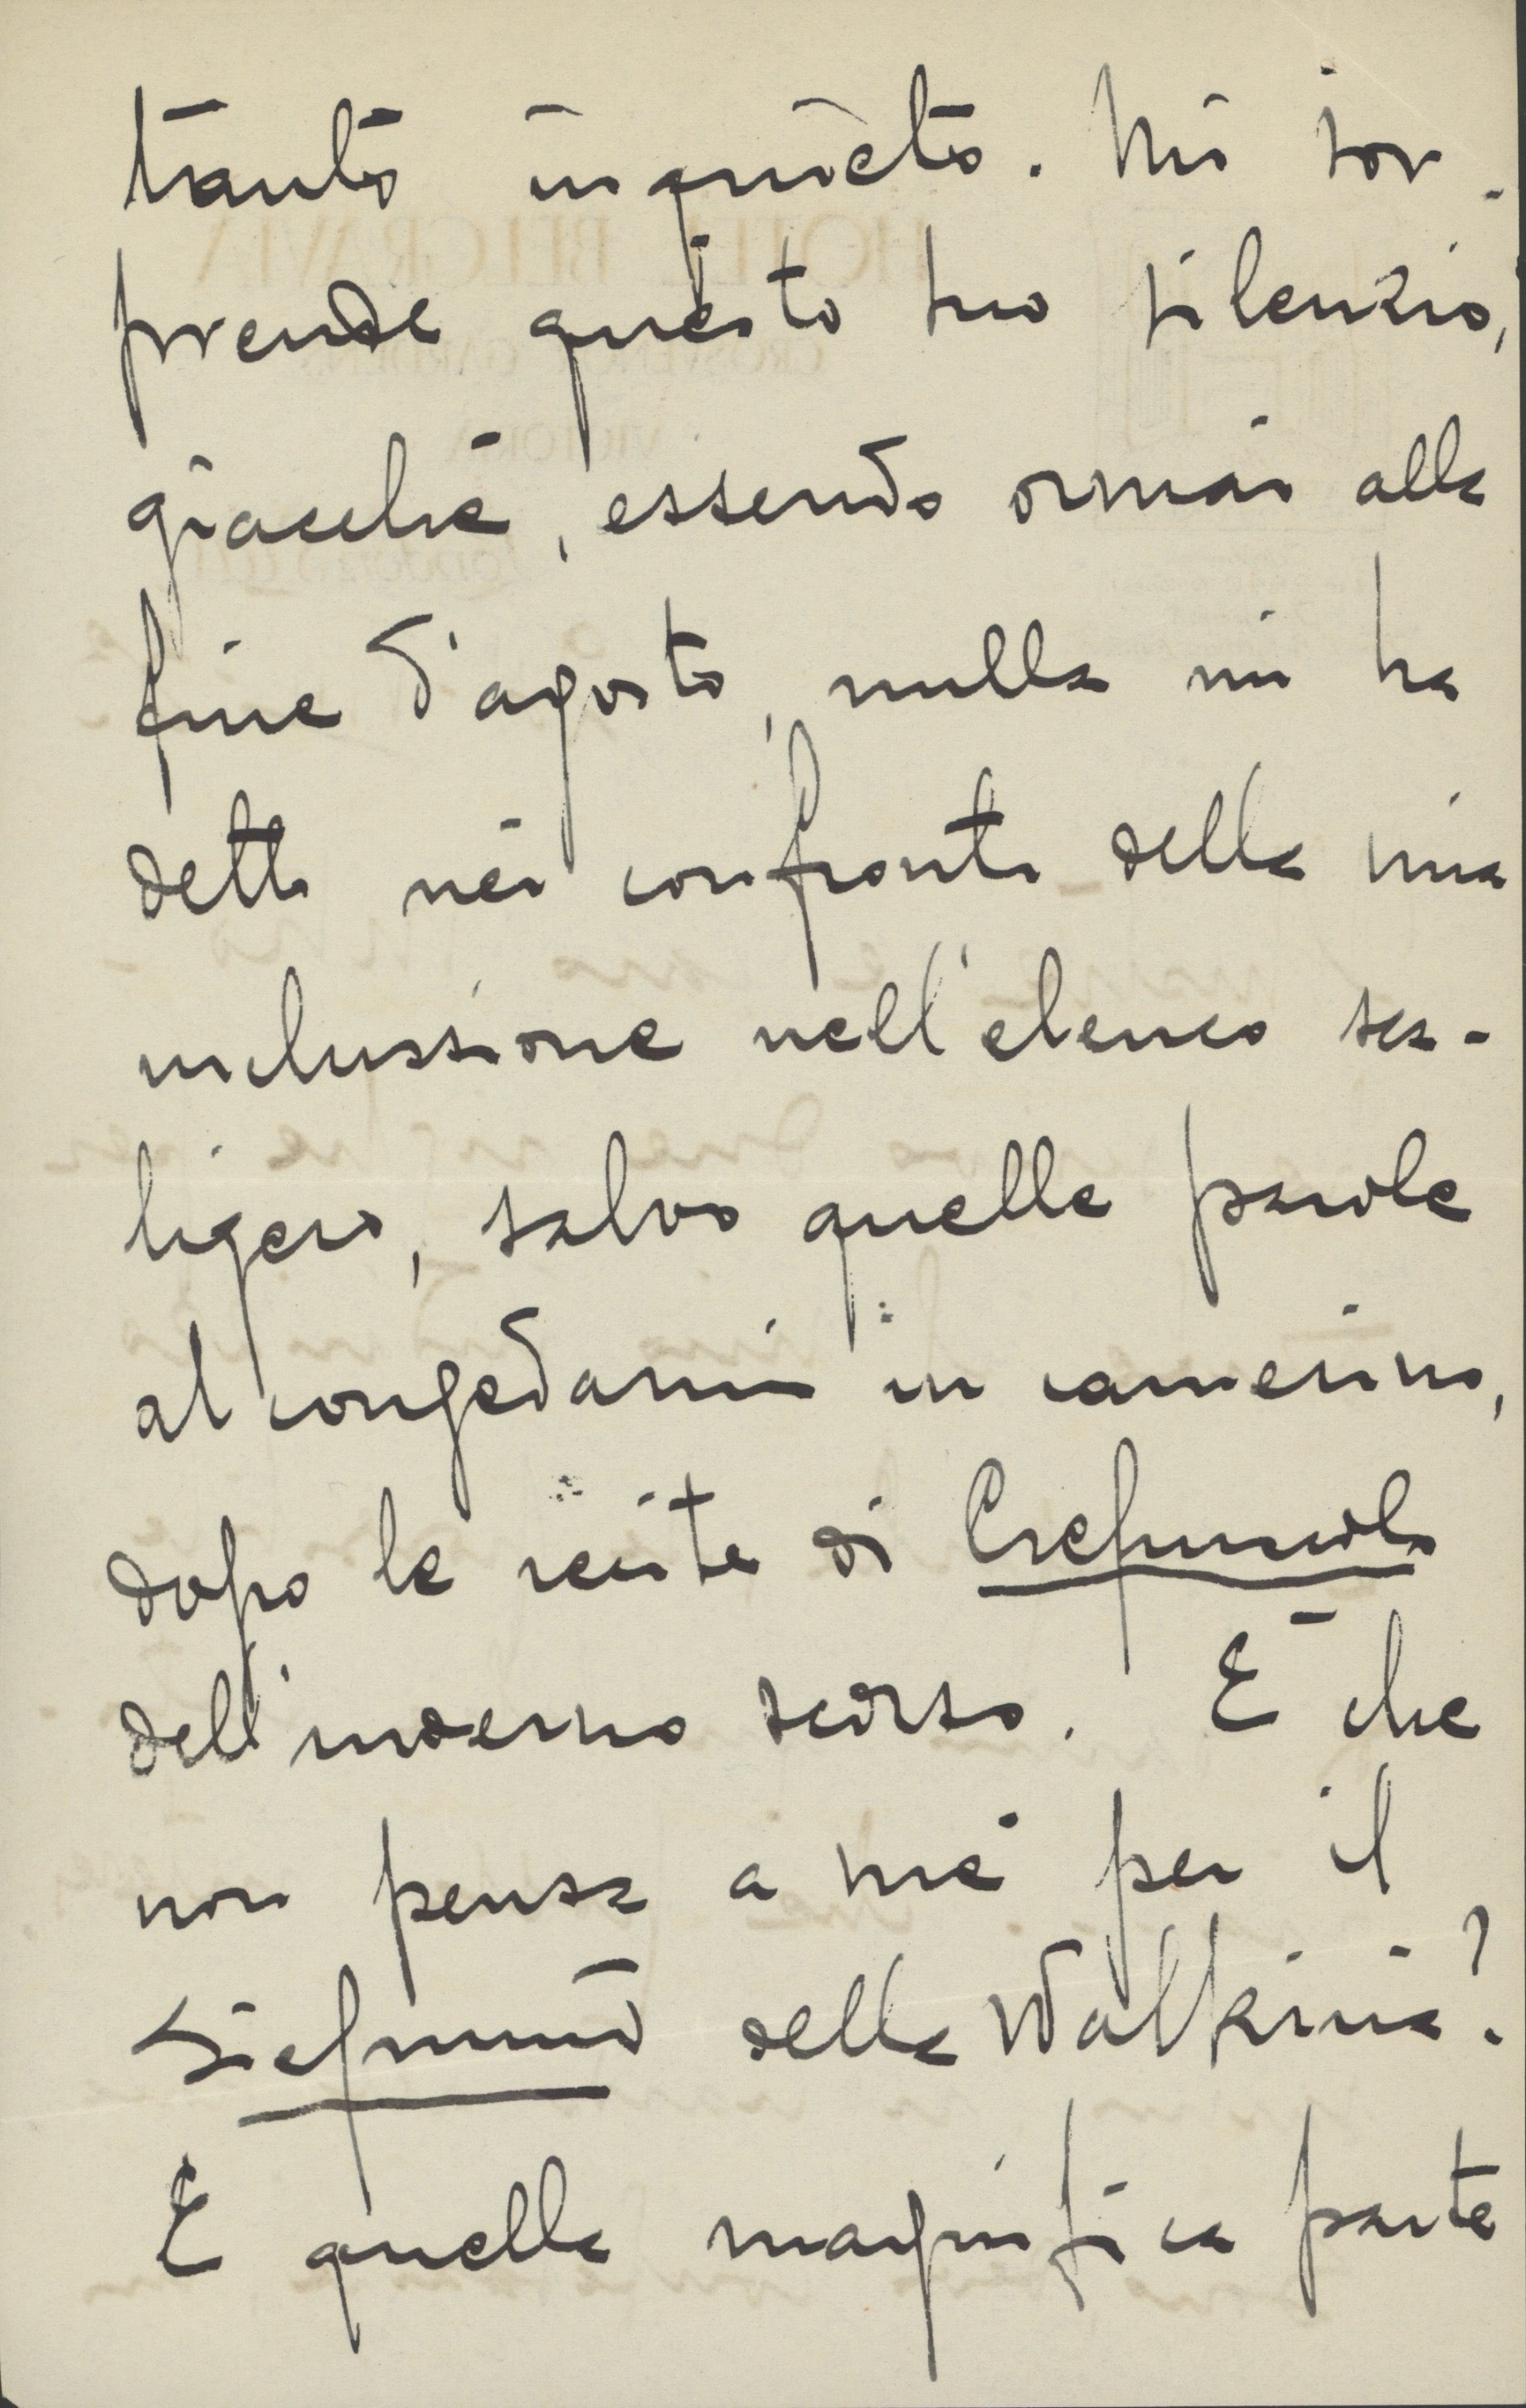 tanto inquieto. Mi sor-
prende questo suo silenzio,
giacché, essendo ormai alla
fine d'agosto, nulla mi ha
detto nei confronti della mia
inclussione nell'elenco sca-
ligero, salvo quelle parole
al congedarmi in camerino,
dopo le recite di Crepuscolo
dell'inverno scorso. È che
non pensa a me per il
Siegmund della Walkiria?
E quella magnifica parte